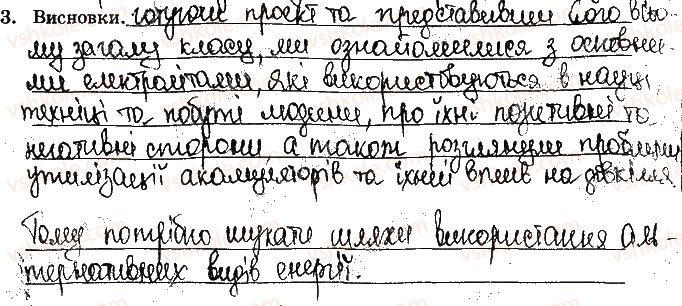 3. Висновки. готуючи проект та представивши його всьо-
му загалу класу, ми ознайомилися з основни-
ми електролітами, які використовуються в науці
техніці та побуті людини, про їхні позитивні та
негативні сторони а також розглянули проблеми
утилізації акамуляторів та їхній вплив на довкілля
Тому потрібно шукати шляхи використання аль-
тернативних видів енергії.